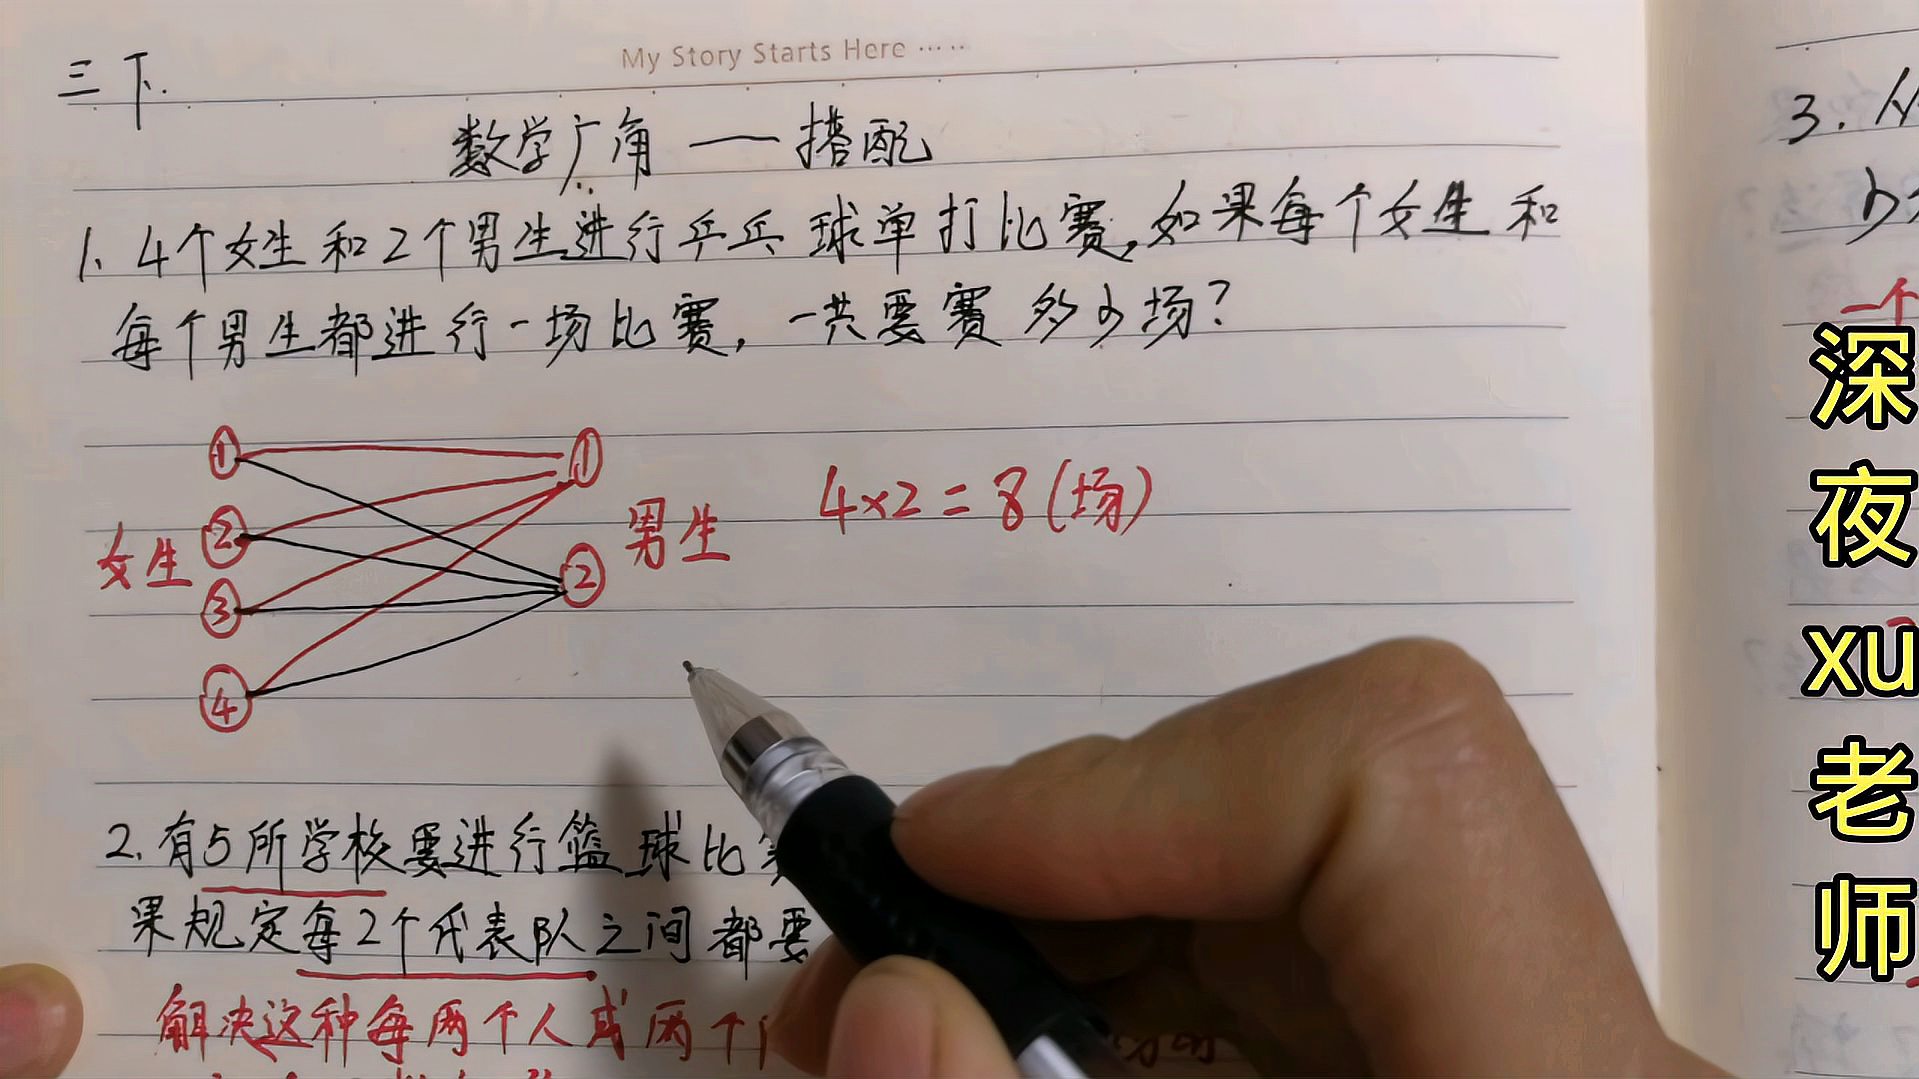 My Story Starts Here ·····
三下.
数学广角——搭配
1、4个女生和2个男生进行乒乓球单打比赛,如果每个女生和
每个男生都进行一场比赛,一共要赛多少场?
① ①
② ②
③
④
女生
男生
4×2=8(场)
2.有5所学校要进行篮球比
果规定每2个代表队之间都要
解决这种每两个人或两个
3.从
少
一个
深夜xu老师